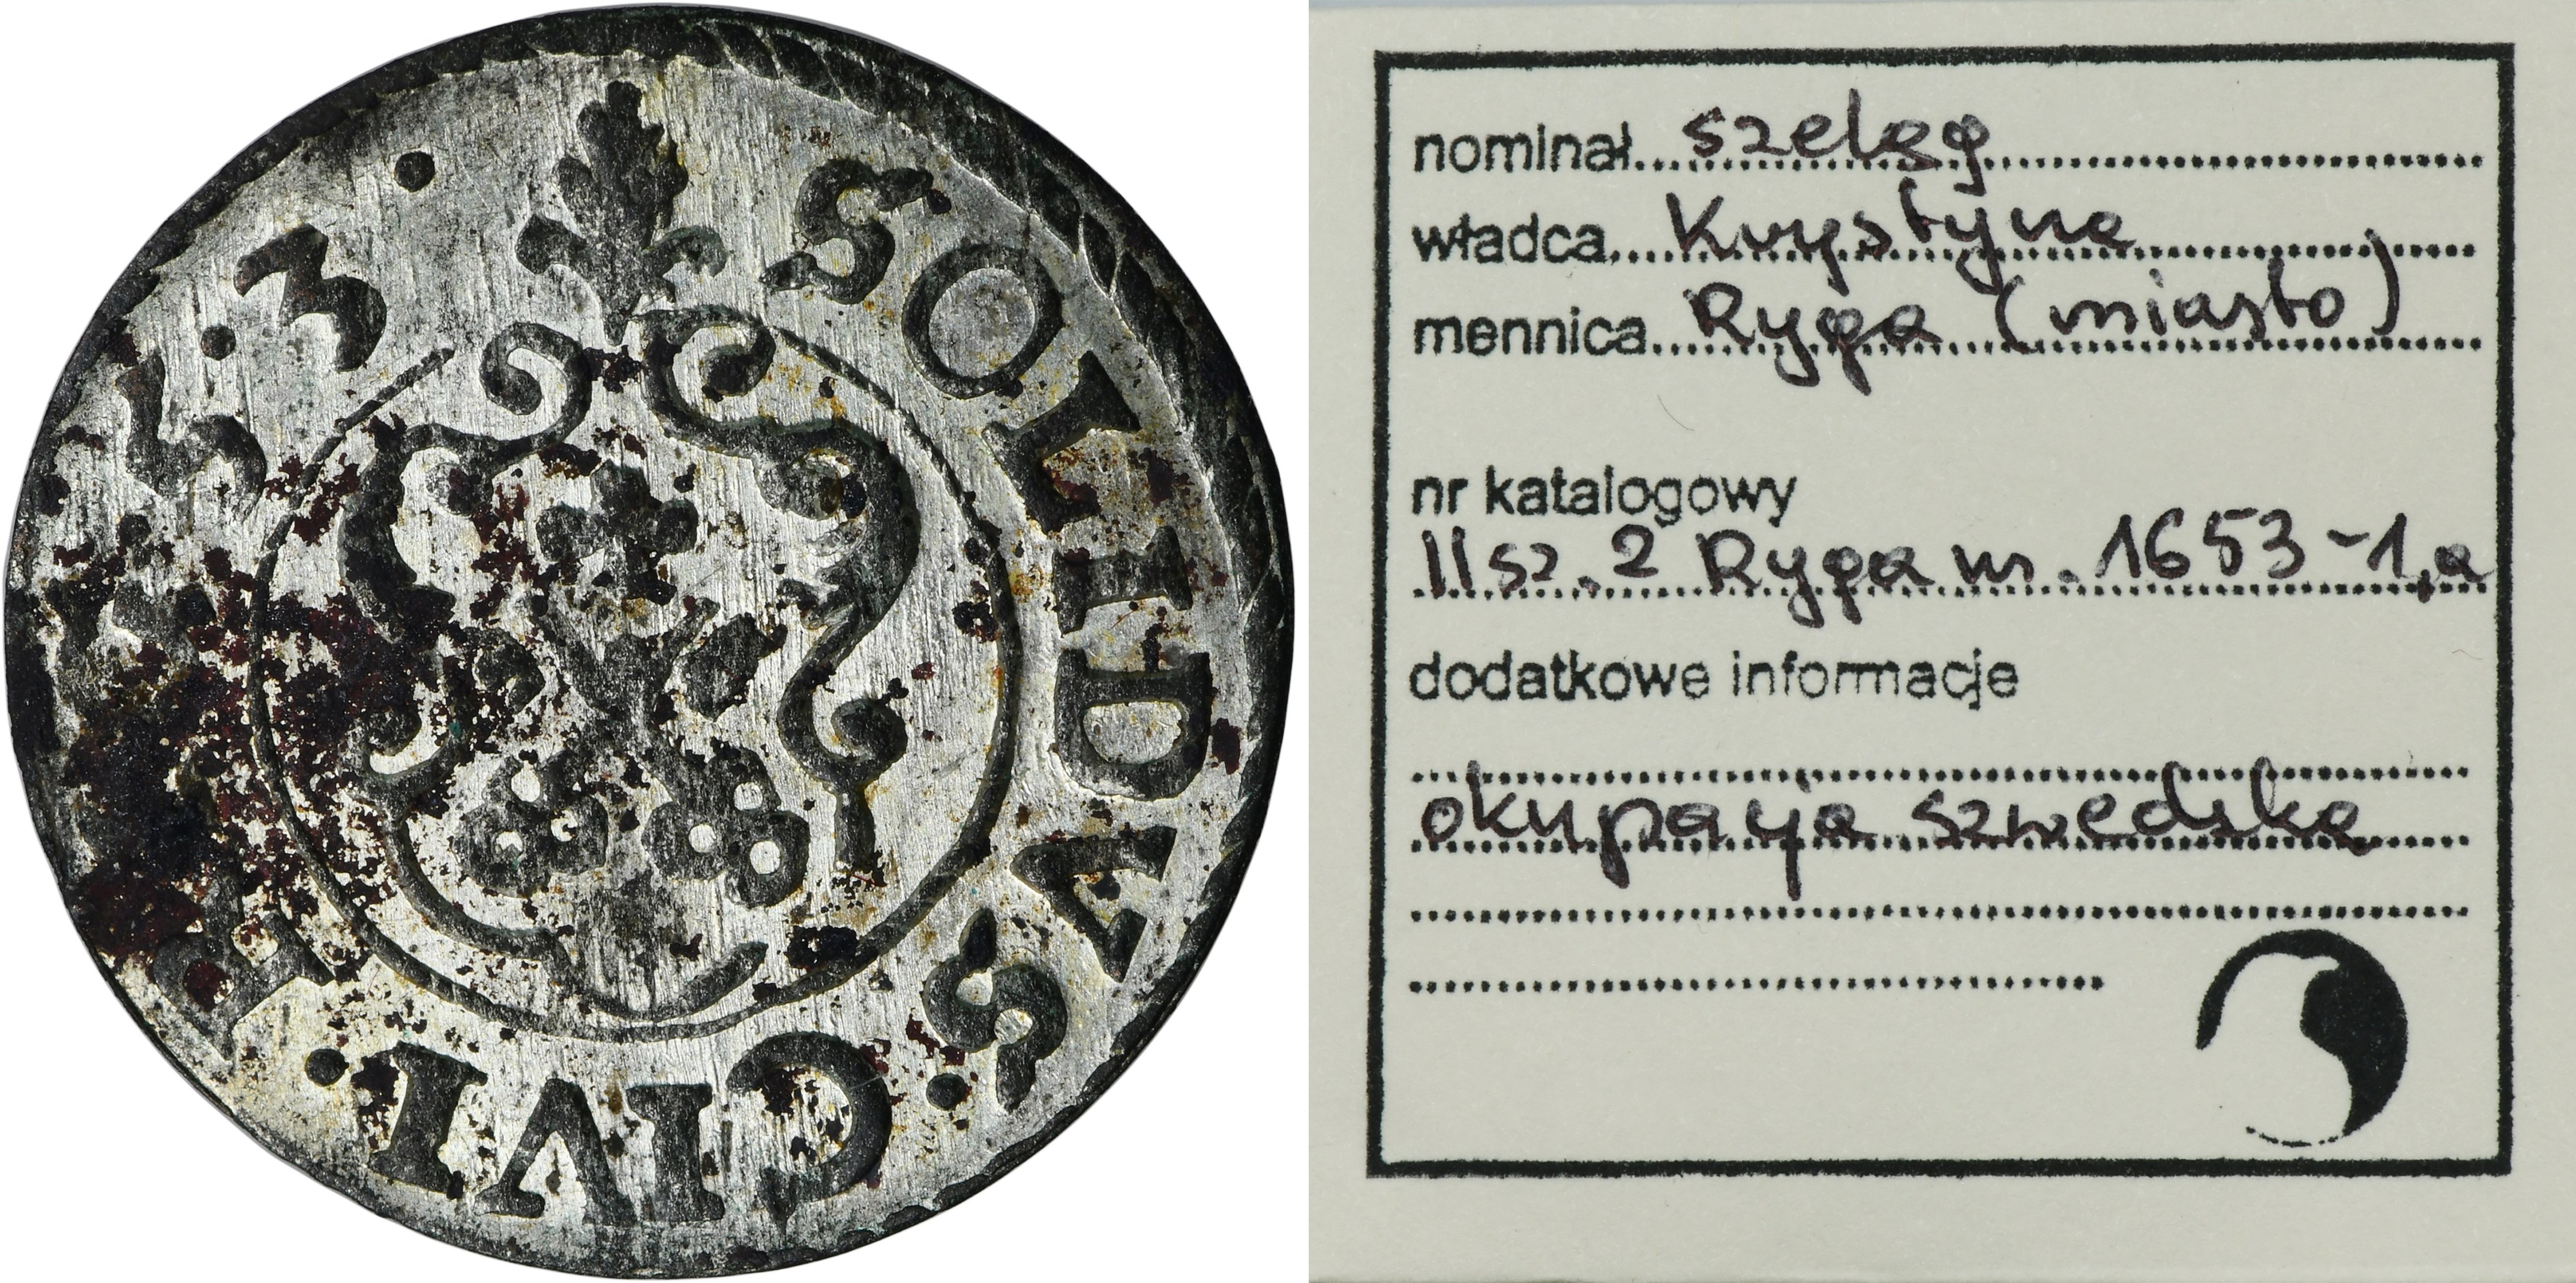 SOLIDVS · CIVI · R · 5 · 3 ·
nominał...szeląg
władca...Krystyna
mennica...Ryga (miasto)
nr katalogowy
II sz. 2 Ryga nr. 1653-1,a
dodatkowe informacje
okupacja szwedzka